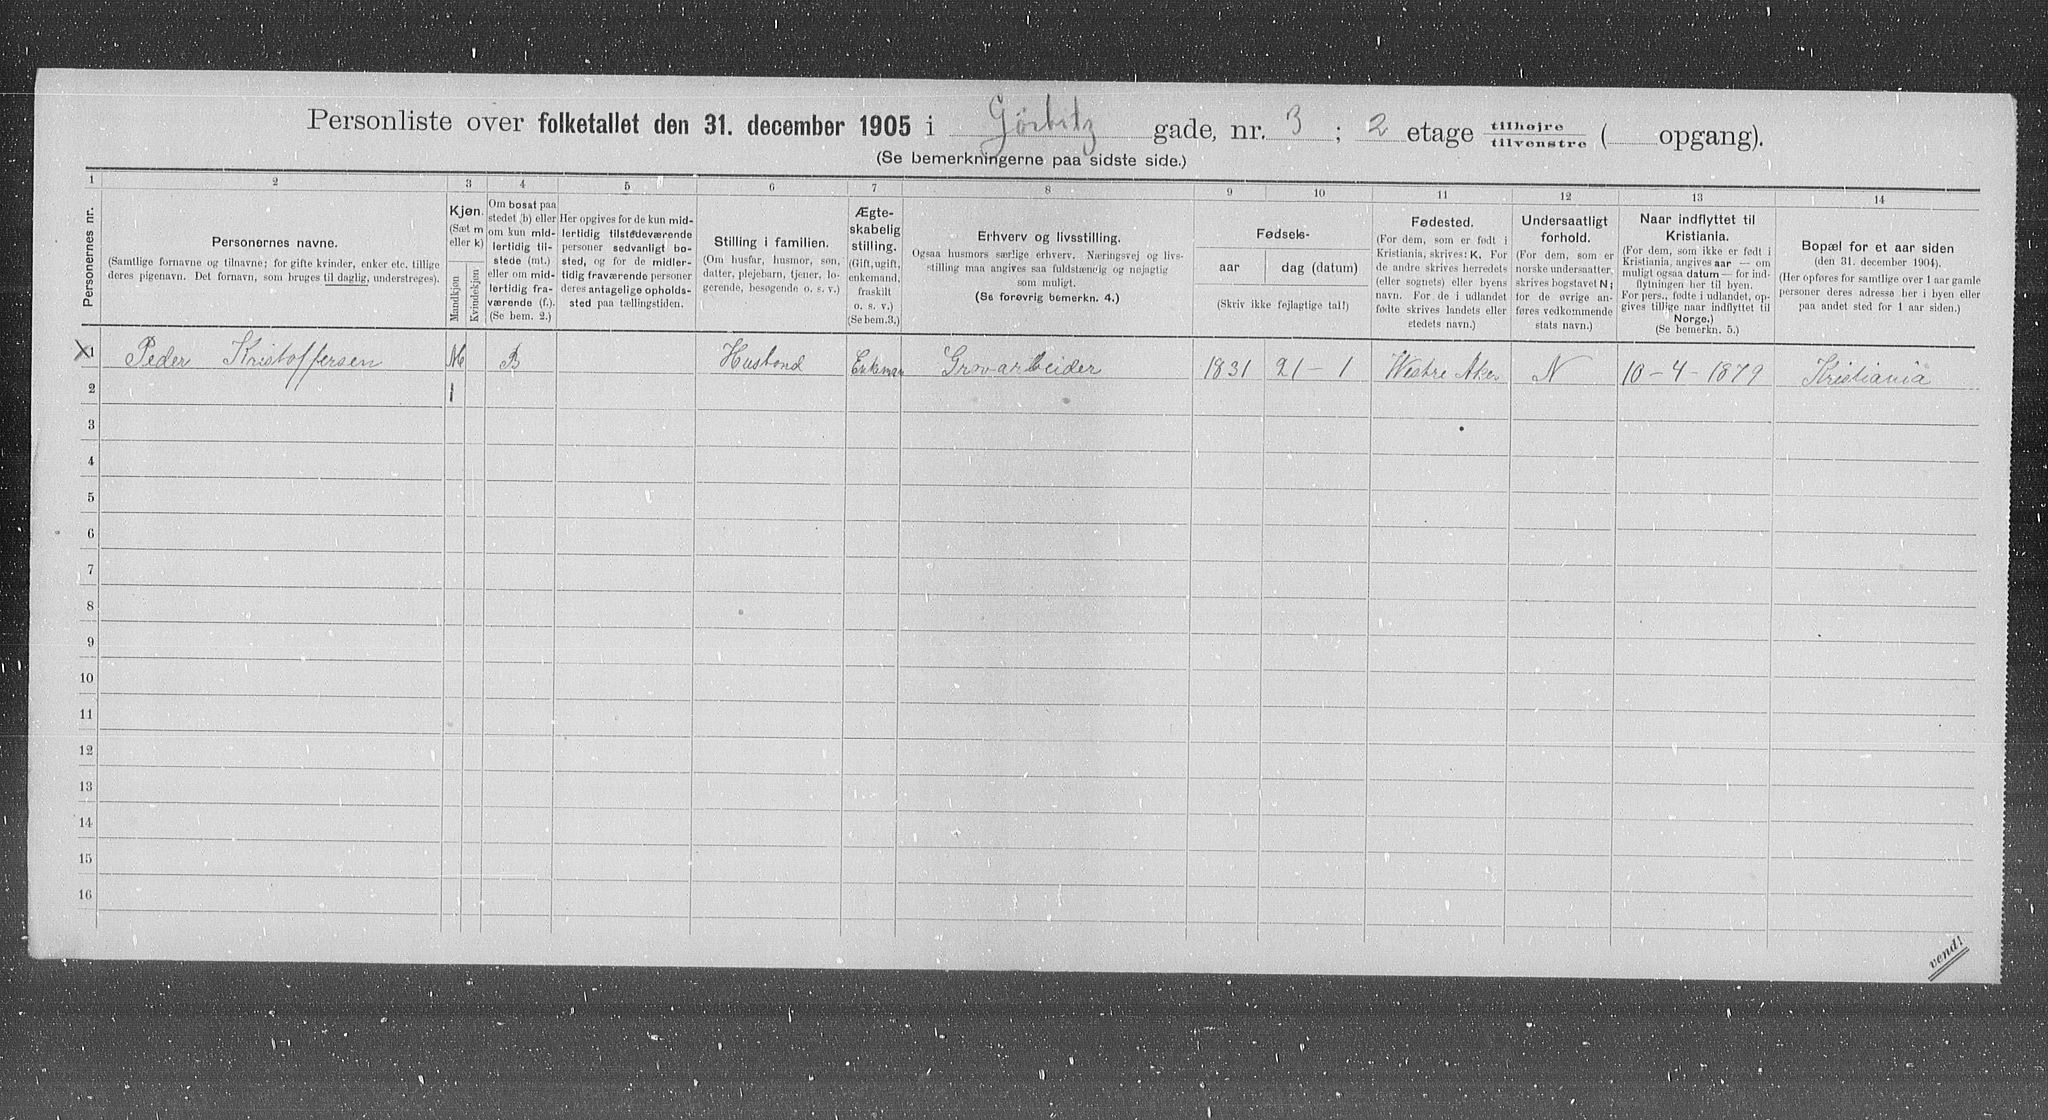 Personliste over folketallet den 31. december 1905 i Gørbitz gade, nr. 3 ; 2 etage tilhøjre tilvenstre ( opgang).
(Se bemerkningerne paa sidste side.)
1 2 3 4 5 6 7 8 9 10 11 12 13 14
Personernes nr.
Personernes navne.
(Samtlige fornavne og tilnavne; for gifte kvinder, enker etc. tillige
deres pigenavn. Det fornavn, som bruges til daglig, understreges).
Kjøn.
(Sæt m
eller k)
Mandkjøn
Kvindekjøn
Om bosat paa
stedet (b) eller
om kun mid-
lertidig til-
stede (mt.)
eller om mid-
lertidig fra-
værende (f.).
(Se bem. 2.)
Her opgives for de kun mid-
lertidig tilstedeværende
personer sedvanligt bo-
sted, og for de midler-
tidig fraværende personer
deres antagelige opholds-
sted paa tællingstiden.
Stilling i familien.
(Om husfar, husmor, søn,
datter, plejebarn, tjener, lo-
gerende, besøgende o. s. v.)
Ægte-
skabelig
stilling.
(Gift, ugift,
enkemand,
fraskilt
o. s. v.)
(Se bem.3.)
Erhverv og livsstilling.
Ogsaa husmors særlige erhverv. Næringsvej og livs-
stilling maa angives saa fuldstændig og nøjagtig
som muligt.
(Se forøvrig bemerkn. 4.)
Fødsels-
aar
dag (datum)
(Skriv ikke fejlagtige tal!)
Fødested.
(For dem, som er født i
Kristiania, skrives: K. For
de andre skrives herredets
(eller sognets) eller byens
navn. For de i udlandet
fødte skrives landets eller
stedets navn.)
Undersaatligt
forhold.
(For dem, som er
norske undersaatter,
skrives bogstavet N;
for de øvrige an-
føres vedkommende
stats navn.)
Naar indflyttet til
Kristiania.
(For dem, som ikke er født i
Kristiania, angives aar — om
muligt ogsaa datum — for ind-
flytningen her til byen.
For pers., fødte i udlandet, op-
gives tillige naar indflyttet til
Norge.)
(Se bemerkn. 5.)
Bopæl for et aar siden
(den 31. december 1904).
(Her opføres for samtlige over 1 aar gamle
personer deres adresse her i byen eller
paa andet sted for 1 aar siden.)
1 Peder Kristoffersen M B Husbond Enkeman Grovarbeider 1831 21 - 1 Westre Aker N 10 - 4 - 1879 Kristiania
2 1
3
4
5
6
7
8
9
10
11
12
13
14
15
16
vend!